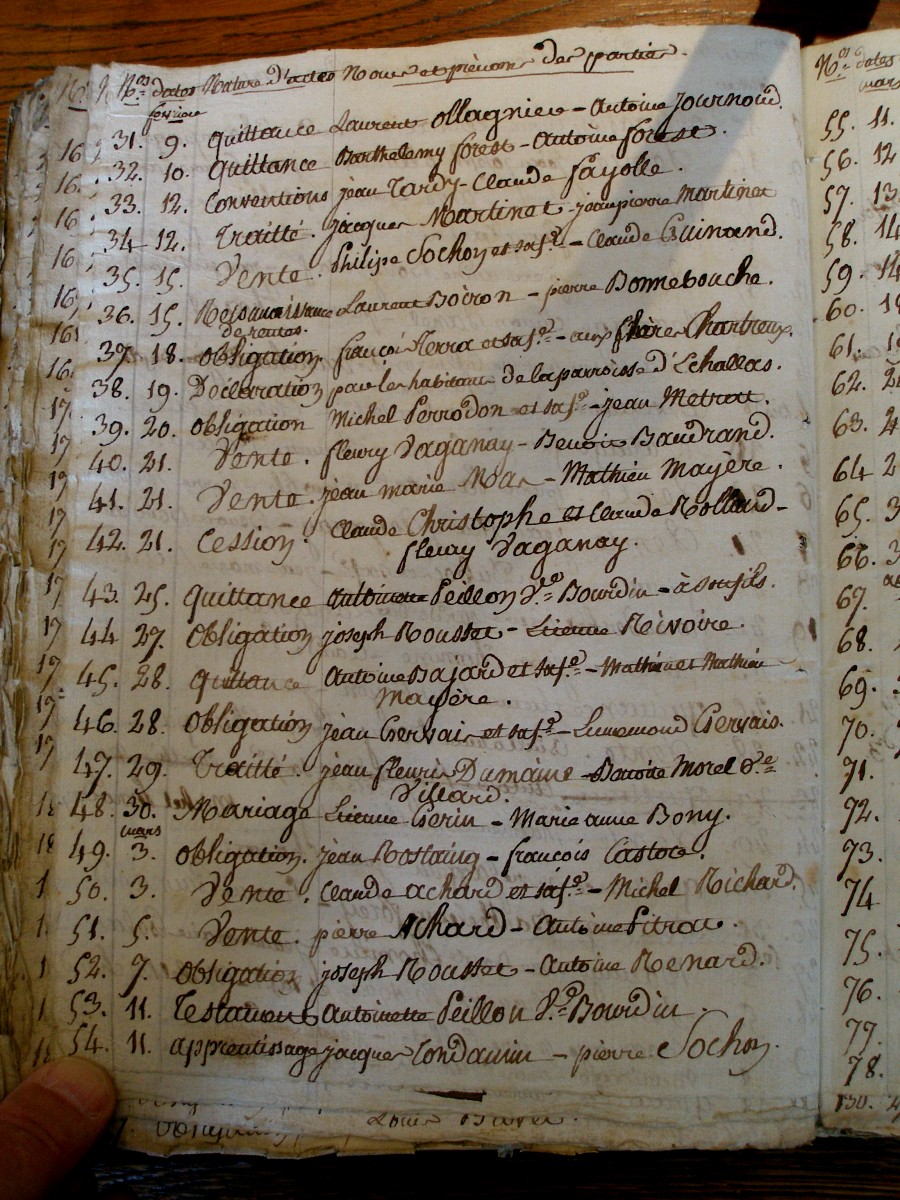 Nos dates Nature d'actes Noms et prénoms des parties.
fevrier
31. 9. quittance Laurent Ollagnier - Antoine Journoud.
32. 10. quittance Barthelemy forest - Antoine forest.
33. 12. Conventions jean Tardy - Claude fayolle.
34 12. Traitté. jacques Martinet - jean pierre Martinet
35. 15. Vente. Philipe Sochon et sa fe. - Claude Guinand.
36. 15. Reconnaissance Laurent Boiron - pierre Bonnebouche.
de rentes.
37. 18. obligation françois et sa fe. - aux Chartreux.
38. 19. Declaration par les habitans de la parroisse d'Echallas.
39. 20. obligation Michel Perrodon et sa fe. - jean Metrat.
40. 21. Vente. fleury Vaganay - Benoit Baudrand.
41. 21. Vente. jean marie - Mathieu Mayère.
42. 21. Cession. Claude Christophe et Claude Rolland -
fleury Vaganay.
43. 25. quittance antoinette Peillon Ve. Bourdin - à son fils.
44 27. obligation joseph Rousset - Etienne Rivoire.
45. 28. quittance antoine Bajard et sa fe. - Mathieu et Mathieu
Mayère.
46. 28. obligation jean Gervais et sa fe. - Gervais.
47. 29. Traitté. jean fleuri Dumaine - Benoite Morel Ve.
Villard.
48. 30. Mariage Etienne Gerin - Marie anne Bony.
mars
49. 3. obligation. jean Rostaing - françois Castor.
50. 3. Vente. Claude achard et sa fe. - Michel Richard.
51. 5. Vente. pierre Achard - Antoine Pitrat.
52. 7. obligation joseph Rousset - Antoine Renard.
53. 11. Testament antoinette Peillon Ve. Bourdin.
54. 11. apprentissage jacques Condamin - pierre Sochon.
Nos dates
mars
55. 11.
56. 12
57. 13
58. 14
59. 14
60.
61.
62.
63.
64
65.
66.
67.
68.
69.
70.
71.
72.
73.
74
75.
76.
77.
78.